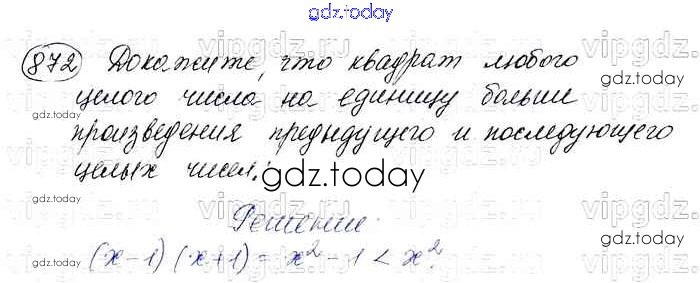 gdz.today
872 Докажите, что квадрат любого
целого числа на единицу больше
произведения предыдущего и последующего
целых чисел.
gdz.today
Решение.
(x-1)(x+1) = x² - 1 < x².
gdz.today
gdz.today